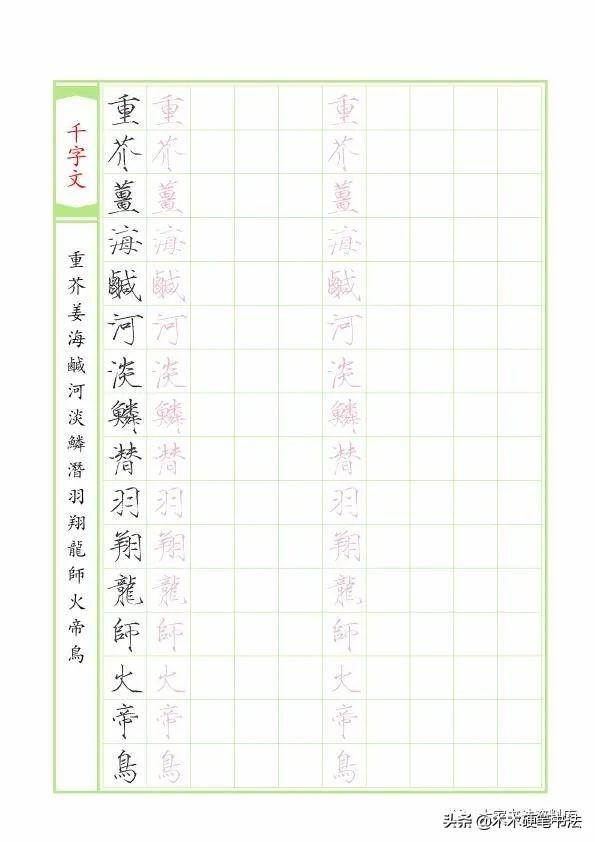 千字文
重芥姜海鹹河淡鱗潛羽翔龍師火帝鳥
重芥薑海鹹河淡鱗潜羽翔龍師火帝鳥
重芥薑海鹹河淡鱗潜羽翔龍師火帝鳥
重芥薑海鹹河淡鱗潜羽翔龍師火帝鳥
头条 @木木硬笔书法